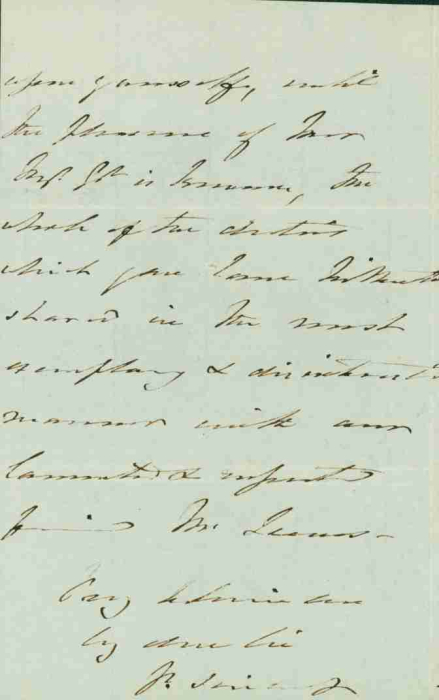 upon yourself, until
the pleasure of Her
Maj. Gt. is known, the
whole of the duties
which you have hitherto
shared in the most
exemplary & disinterested
manner with our
lamented & respected
friend Mr.
Pray believe me